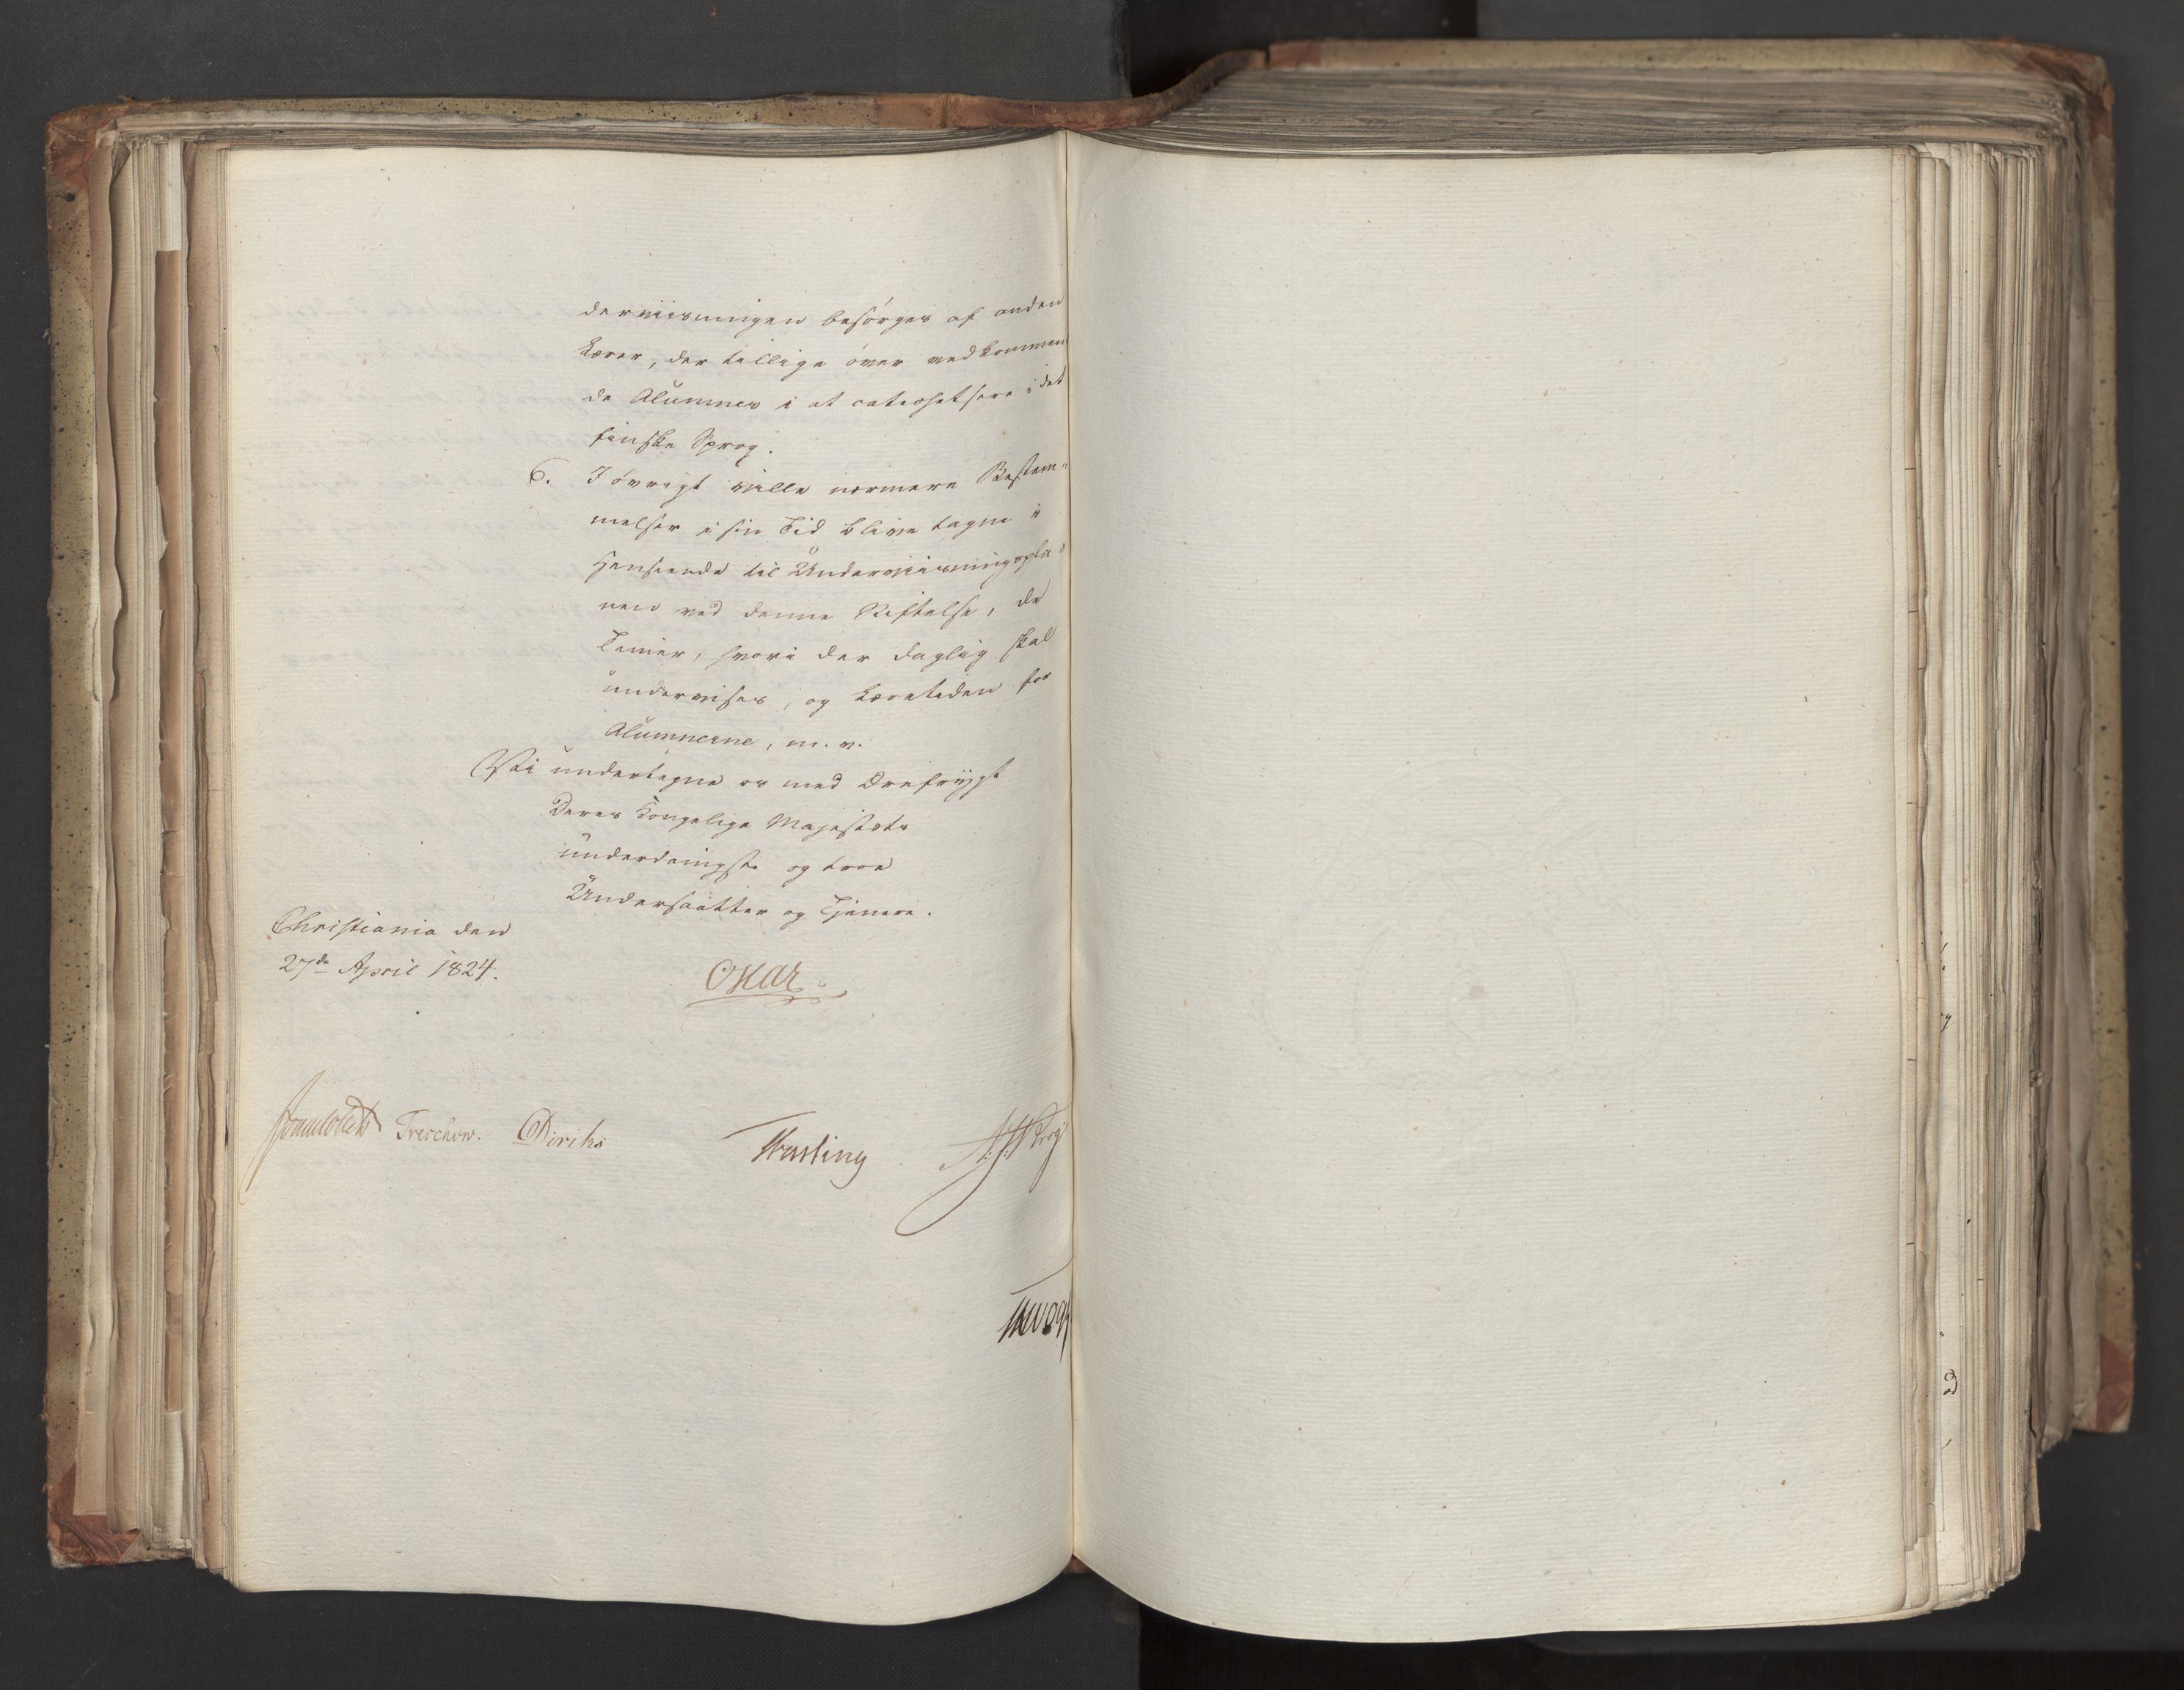 derviisningen besørges af anden
Lærer, der tillige øver vedkommen
de Alumner i at catechetsere i det
finske Sprog.
6. I øvrigt ville nærmere Bestem-
melser i sin Tid blive tagne i
Henseende til Underviisningspla-
nen ved denne Stiftelse, de
Timer, hvori der daglig skal
undervises, og Læretiden for
Alumnerne, m. v.
Vi undertegne os med Ærefrygt
Deres Kongelige Majestæts
underdanigste og troe
Undersaatter og Tjenere.
Christiania den
27de April 1824.
Oscar
Sommerhielm Treschow. Diriks
Fasting